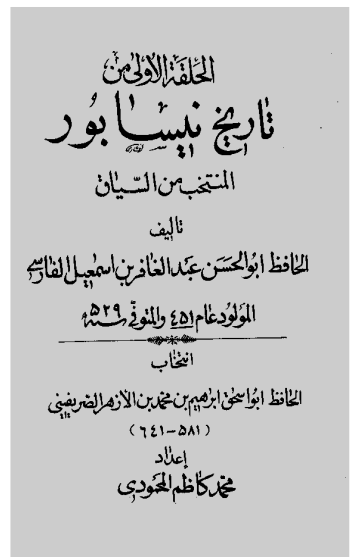 الحلقة الأولى من
تاريخ نيسابور
المنتخب من السياق
تاليف
الحافظ ابوالحسن عبد الغافر بن اسمعيل الفارسي
المولود عام ٤٥١ والمتوفى سنة ٥٢٩
انتخاب
الحافظ ابواسحق ابراهيم بن محمد بن الأزهر الصريفيني
(٥٨١-٦٤١)
إعداد
محمد كاظم المحمودي